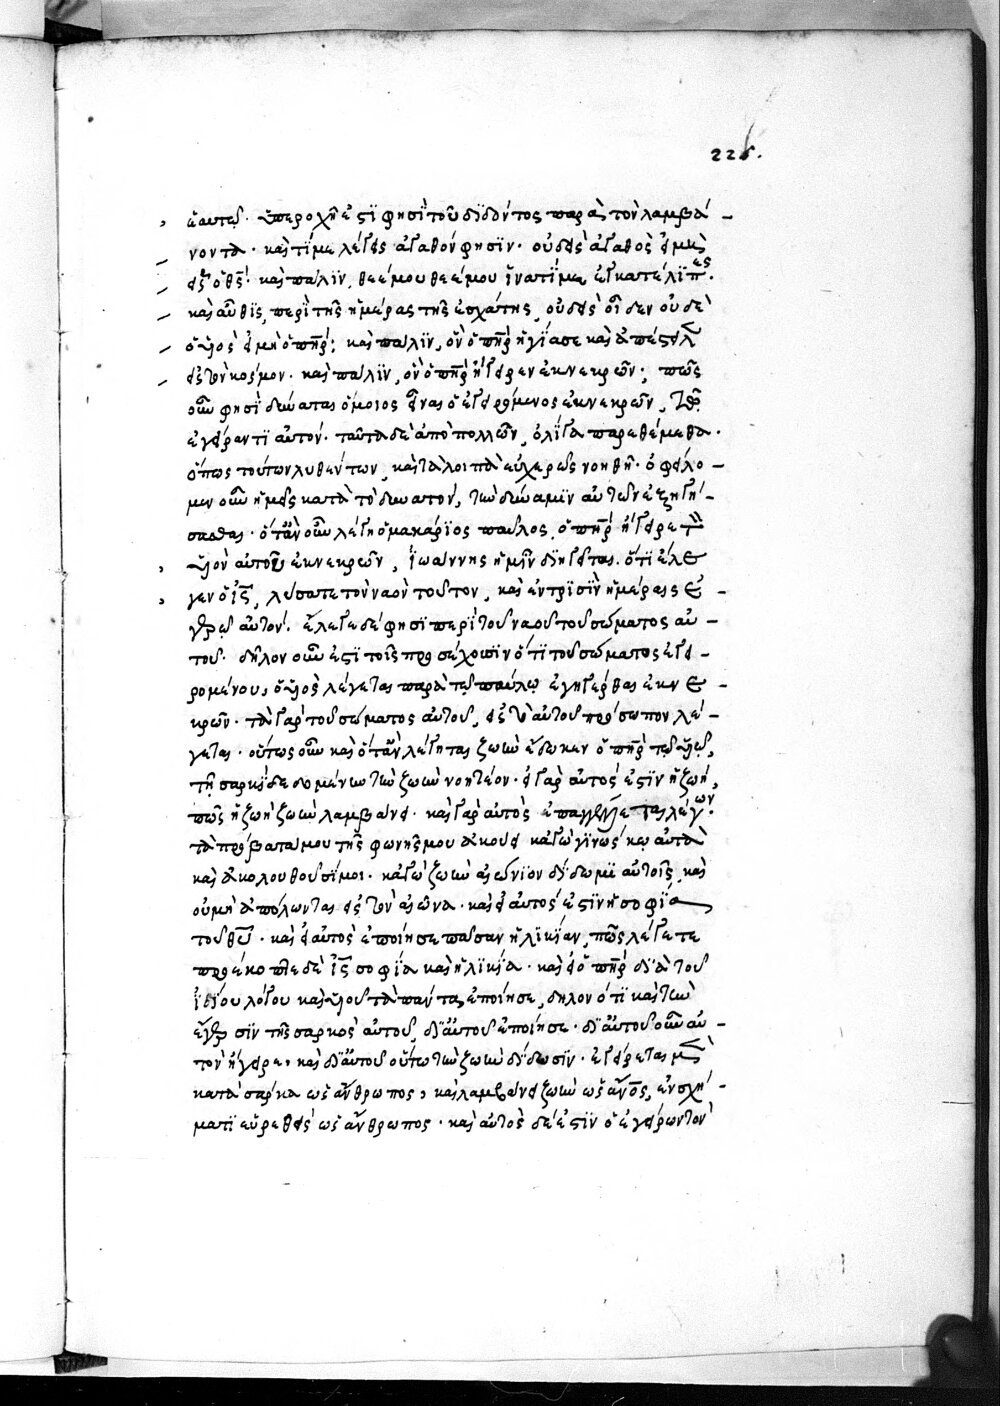 226.
ἑαυτῷ. ὑπεροχὴ ἐστὶ φησὶ τοῦ διδόντος παρὰ τὸν λαμβά-
νοντα. καὶ τί με λέγεις ἀγαθόν φησιν. οὐδεὶς ἀγαθὸς εἰ μὴ
εἷς ὁ θς̅. καὶ πάλιν, θεέ μου θεέ μου ἵνα τί με ἐγκατέλιπες.
καὶ αὖθις, περὶ τῆς ἡμέρας τῆς ἐσχάτης, οὐδεὶς οἶδεν οὐδὲ
ὁ υἱὸς εἰ μὴ ὁ πηρ̅; καὶ πάλιν, ὃν ὁ πηρ̅ ἡγίασε καὶ ἀπέστειλεν
εἰς τὸν κόσμον. καὶ πάλιν, ὃν ὁ πηρ̅ ἤγειρεν ἐκ νεκρῶν; πῶς
οὖν φησὶ δύναται ὅμοιος εἶναι ὁ ἐγειρόμενος ἐκ νεκρῶν, τῷ
ἐγείραντι αὐτόν. ταῦτα δὲ ἀπὸ πολλῶν, ὀλίγα παρεθέμεθα.
ὅπως τούτων λυθέντων, καὶ τὰ λοιπὰ εὐχερῶς νοηθῆ. ὀφείλο-
μεν οὖν ἡμεῖς κατὰ τὸ δυνατὸν, τὴν δύναμιν αὐτῶν ἐξηγή-
σασθαι. ὅταν οὖν λέγη ὁ μακάριος παῦλος, ὁ πηρ̅ ἤγειρε τὸν
υἱὸν αὐτοῦ ἐκ νεκρῶν, ἰωάννης ἡμῖν διηγεῖται. ὅτι ἔλε
γεν ὁ ις̅, λύσατε τὸν ναὸν τοῦτον, καὶ ἐν τρισὶν ἡμέραις ἐ-
γερῶ αὐτόν. ἔλεγε δέ φησι περὶ τοῦ ναοῦ τοῦ σώματος αὐ-
τοῦ. δῆλον οὖν ἐστὶ τοῖς προσέχουσιν ὅτι τοῦ σώματος ἐγει-
ρομένου, ὁ υἱὸς λέγεται παρὰ τῷ παύλῳ ἐγηγέρθαι ἐκ νε-
κρῶν. τὰ γὰρ τοῦ σώματος αὐτοῦ, εἰς τὸ αὐτοῦ πρόσωπον λέ-
γεται. οὕτως οὖν καὶ ὅταν λέγηται ζωὴν ἔδωκεν ὁ πηρ̅ τῷ υἱῷ,
τῆ σαρκὶ δεδομένην τὴν ζωὴν νοητέον. εἰ γὰρ αὐτός ἐστιν ἡ ζωή,
πῶς ἡ ζωὴ ζωὴν λαμβάνει. καὶ γὰρ αὐτὸς ἐπαγγέλλεται λέγων.
τὰ πρόβατά μου τῆς φωνῆς μου ἀκούει κἀγὼ γινώσκω αὐτὰ
καὶ ἀκολουθοῦσί μοι. κἀγὼ ζωὴν αἰώνιον δίδωμι αὐτοῖς, καὶ
οὐ μὴ ἀπόλωνται εἰς τὸν αἰῶνα. καὶ εἰ αὐτός ἐστιν ἡ σοφία
τοῦ θυ̅. καὶ εἰ αὐτὸς ἐποίησε πᾶσαν ἡλικίαν, πῶς λέγετε
προέκοπτε δὲ ις̅ σοφία καὶ ἡλικία. καὶ εἰ ὁ πηρ̅ διὰ τοῦ
ἰδίου λόγου καὶ υἱοῦ τὰ πάντα ἐποίησε, δῆλον ὅτι καὶ τὴν
ἔγερσιν τῆς σαρκὸς αὐτοῦ, δι' αὐτοῦ ἐποίησε. δι' αὐτοῦ οὖν αὐ-
τὸν ἤγειρε, καὶ δι' αὐτοῦ οὕτω τὴν ζωὴν δίδωσιν. ἐγείρεται μὲν
κατὰ σάρκα ὡς ἄνθρωπος, καὶ λαμβάνει ζωὴν ὡς ἄνος̅, ἐν σχή-
ματι εὑρεθεὶς ὡς ἄνθρωπος. καὶ αὐτὸς δέ ἐστιν ὁ ἐγείρων τὸν